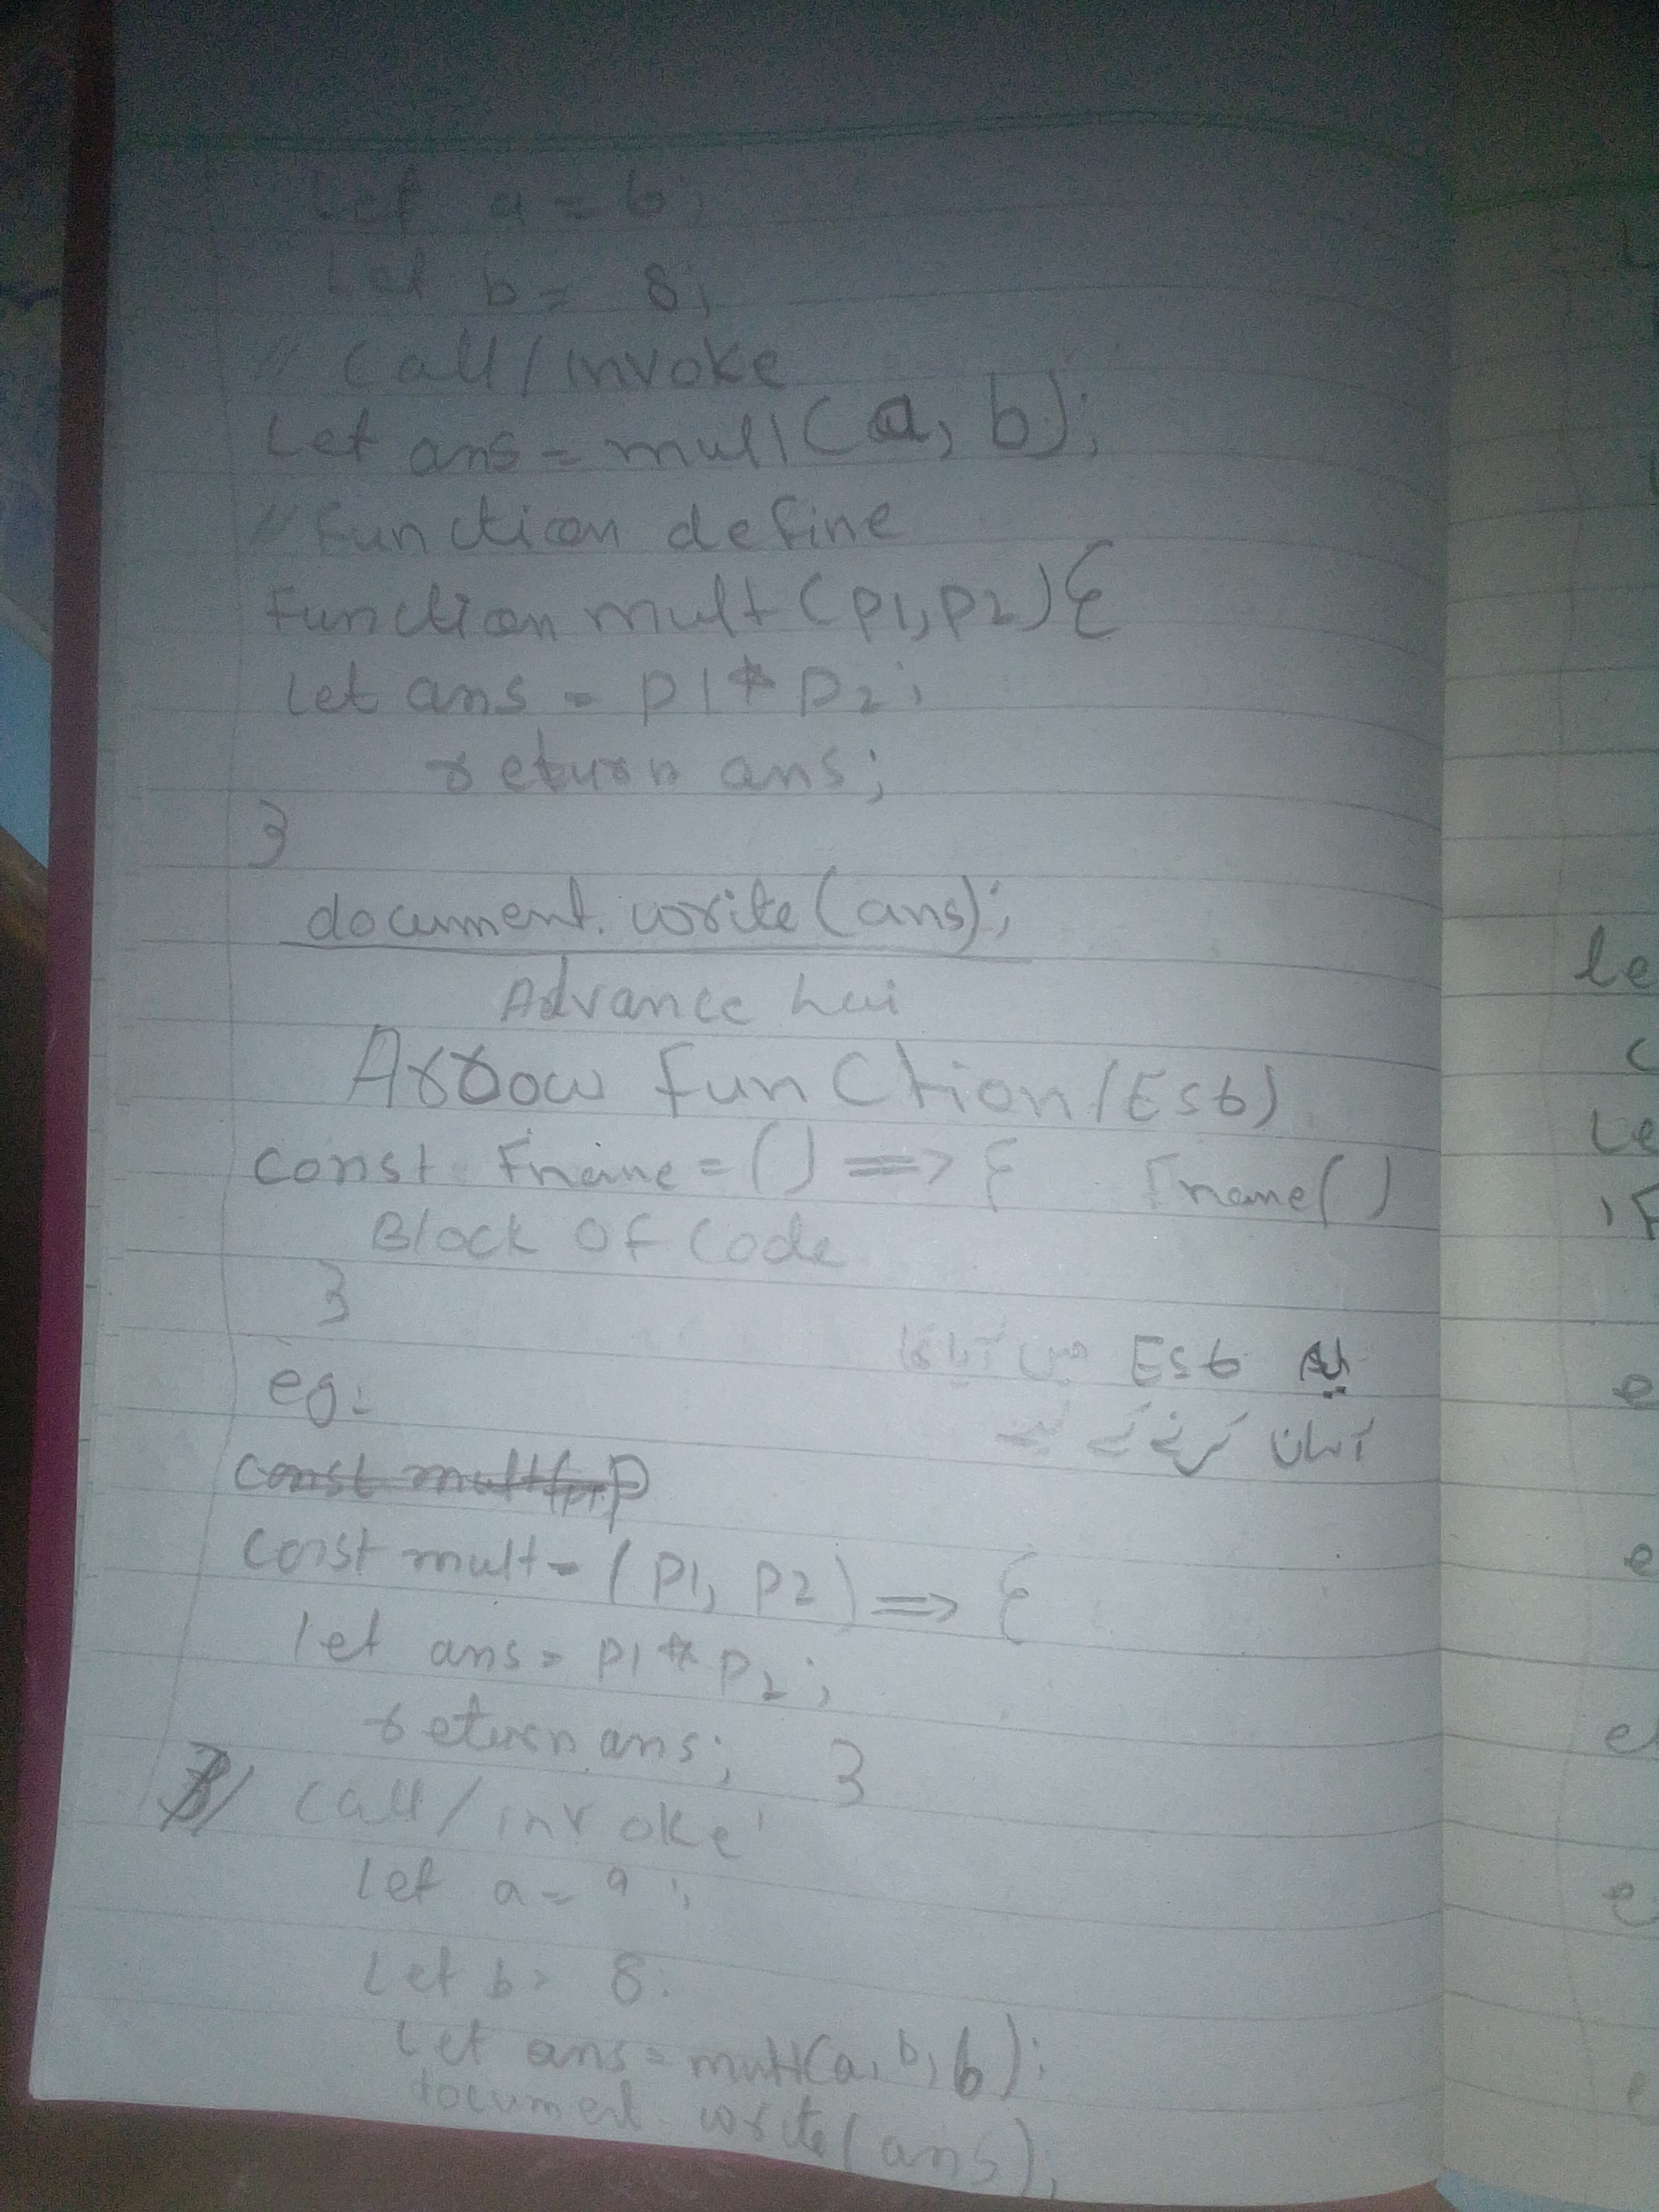 Let a = 6;
Let b = 8;
// Call / invoke
Let ans = mull(a, b);
// Function define
Function mult (P1, P2) {
Let ans = P1 * P2;
return ans;
}
document.write(ans);
Advance hui
Arrow function (Es6)
const Fname = () => { Fname()
Block of code
}
یہ Es6 میں آیا تھا
eg:
آسان کرنے کے لیے
const mult = (P1, P2) => {
let ans = P1 * P2;
return ans; }
// Call / invoke
let a = 9;
Let b = 8;
Let ans = mult(a, b, b);
document.write(ans);
le
c
Le
iF
e
e
el
e